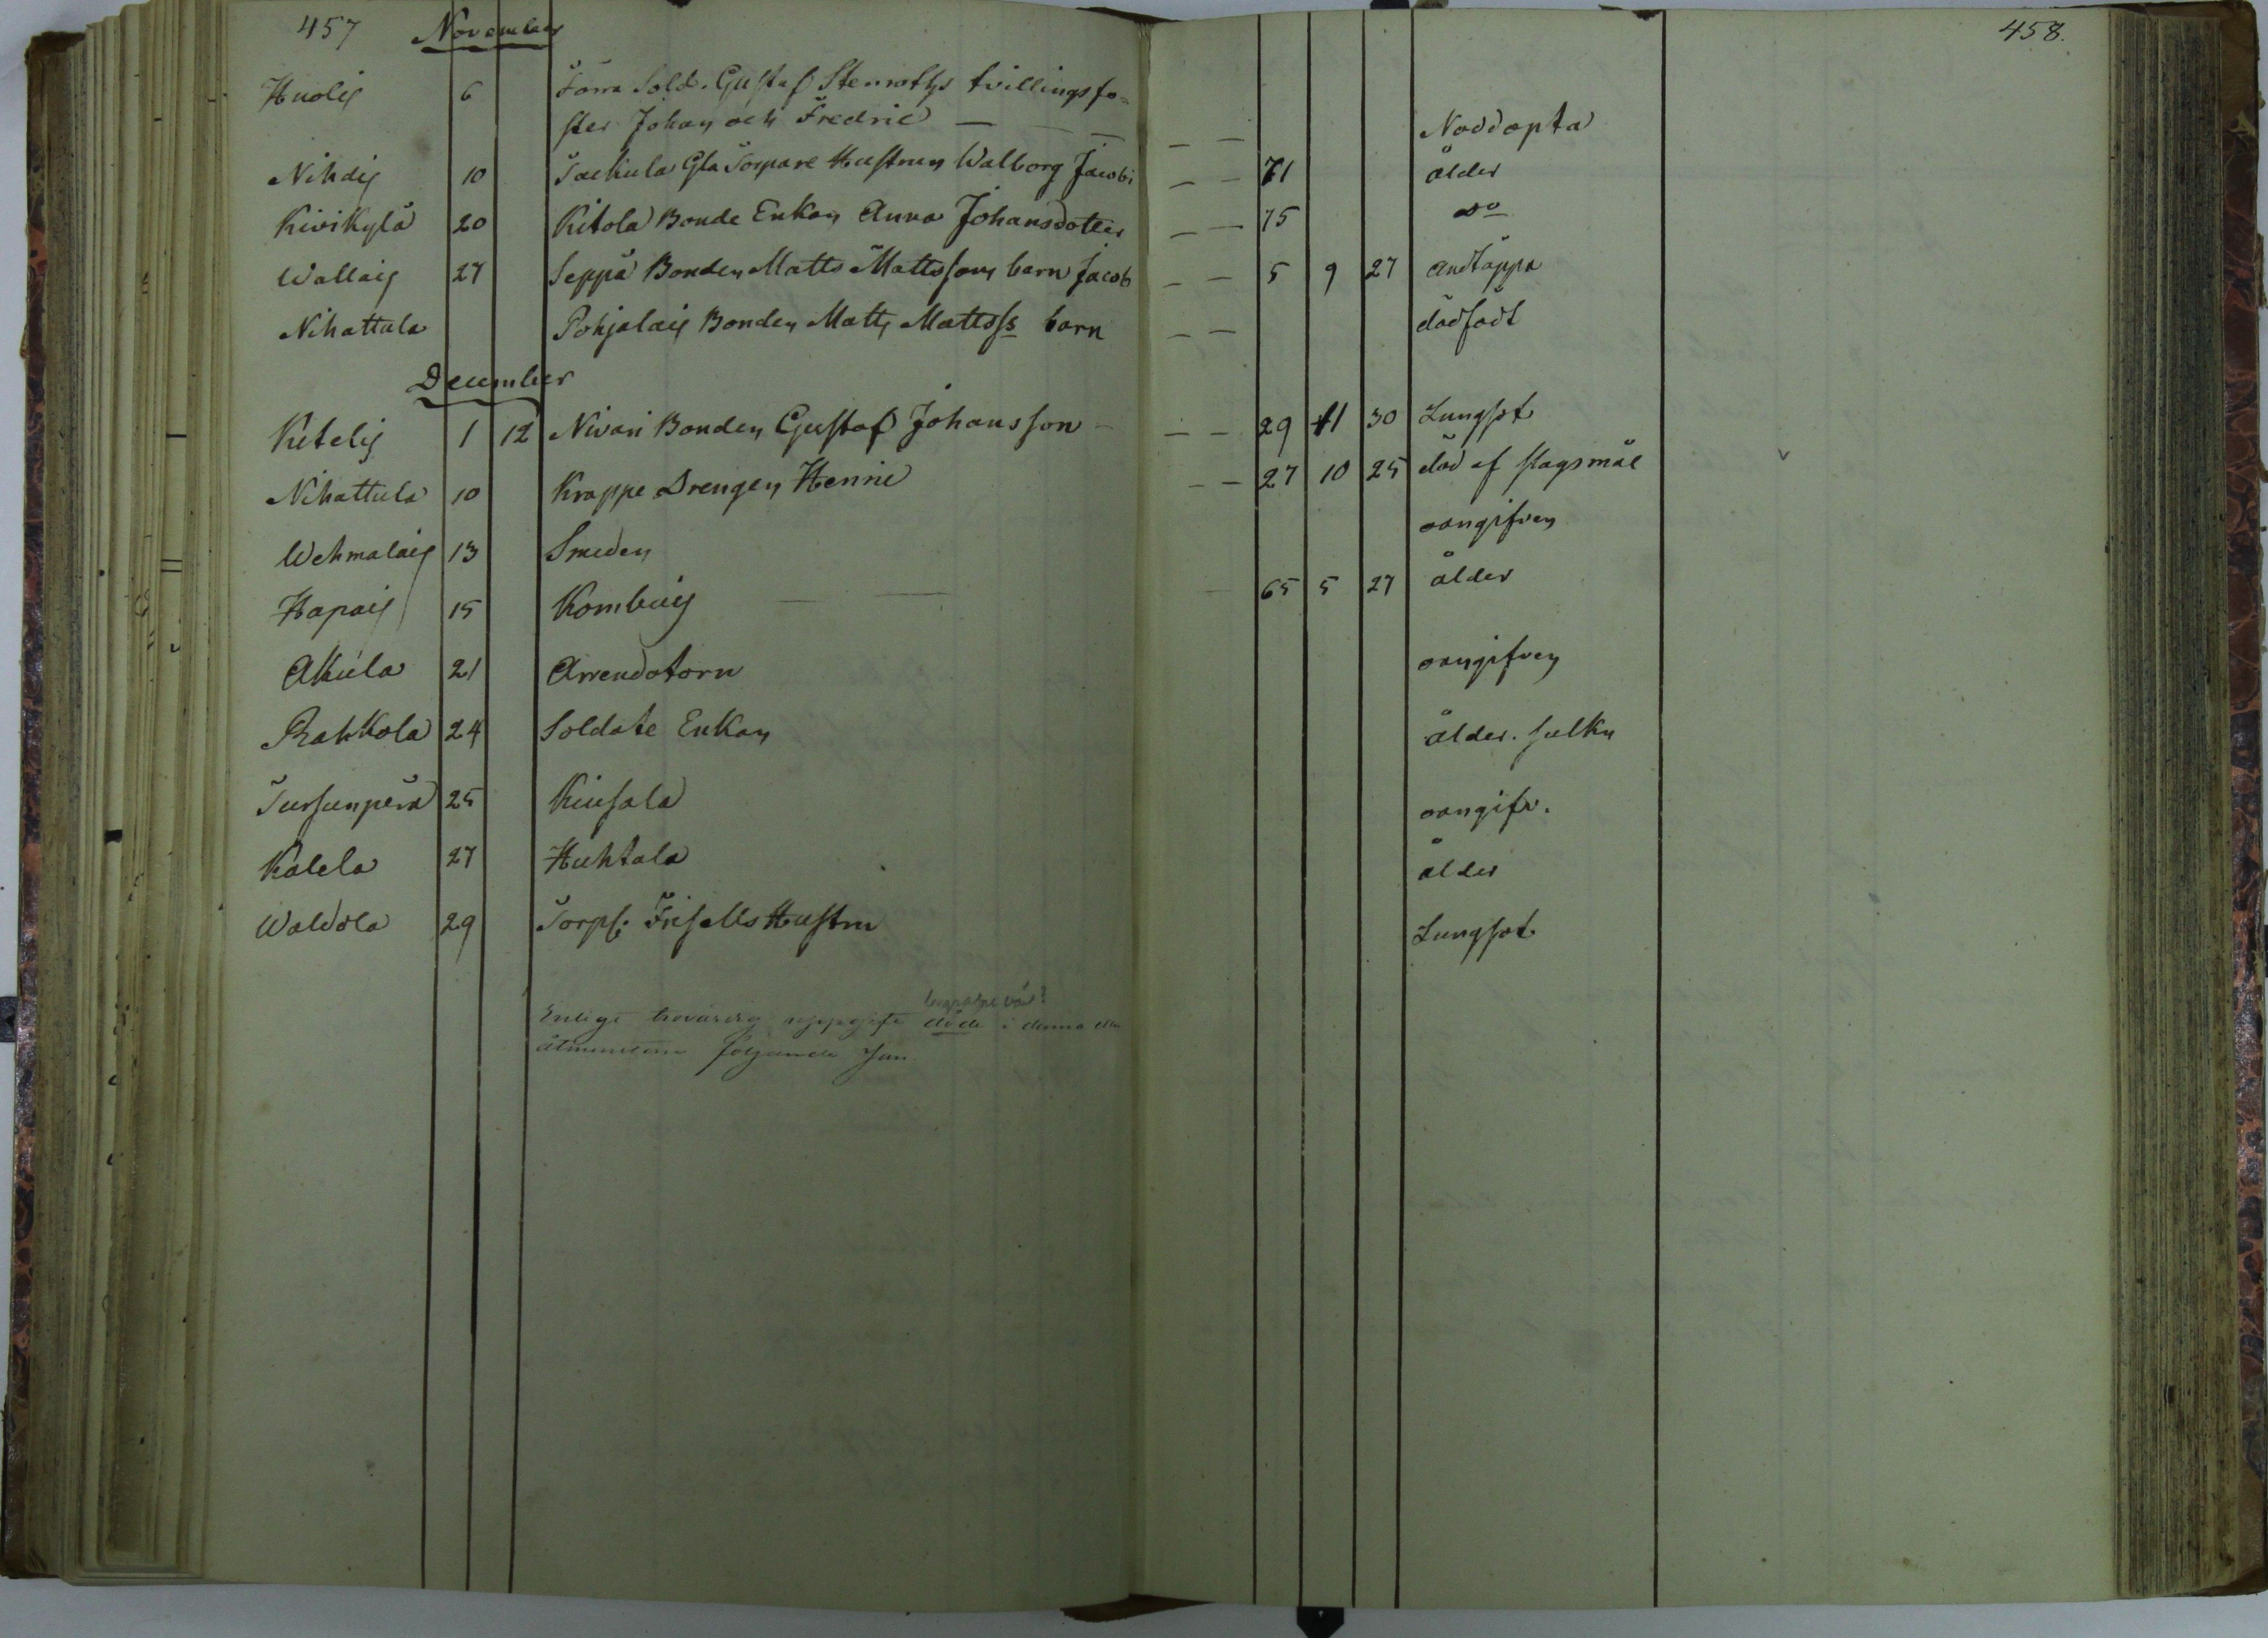 457 November 458.
Huolis 6 Förra Sold. Gustaf Stenroths tvillingsfo=
ster Johan och Fredric — Nöddöpta
Nihdis 10 Gla Torpare Hustrun Walborg Jacobi — — 71 ålder
Kivikylä 20 Kitola Bonde Enkan Anna Johansdotter — — 75 do
Wallais 27 Seppä Bonden Matts Mattsons barn Jacob — — 5 9 27 andtäppa
Nihattula Pohjalais Bonden Matts Mattss barn — — dödfödt
December
Ketelis 1 12 Nivari Bonden Gustaf Johansson — — 29 11 30 Lungsot
Nihattula 10 Krappe Drengen Henric — — 27 10 25 död af slagsmål v
Wehmalais 13 Smeden oangifven
Hapais 15 Kombois — — 65 5 27 ålder
Akula 21 Arrendatorn oangifven
Rahkola 24 Soldate Enkan ålder.
Tursunperä 25 Kiusala oangifv.
Kalela 27 Huhtala ålder
Waldola 29 Torp. Frisells Hustru Lungsot
Enligt trovärdig uppgift döde i denna
åtminstone följande